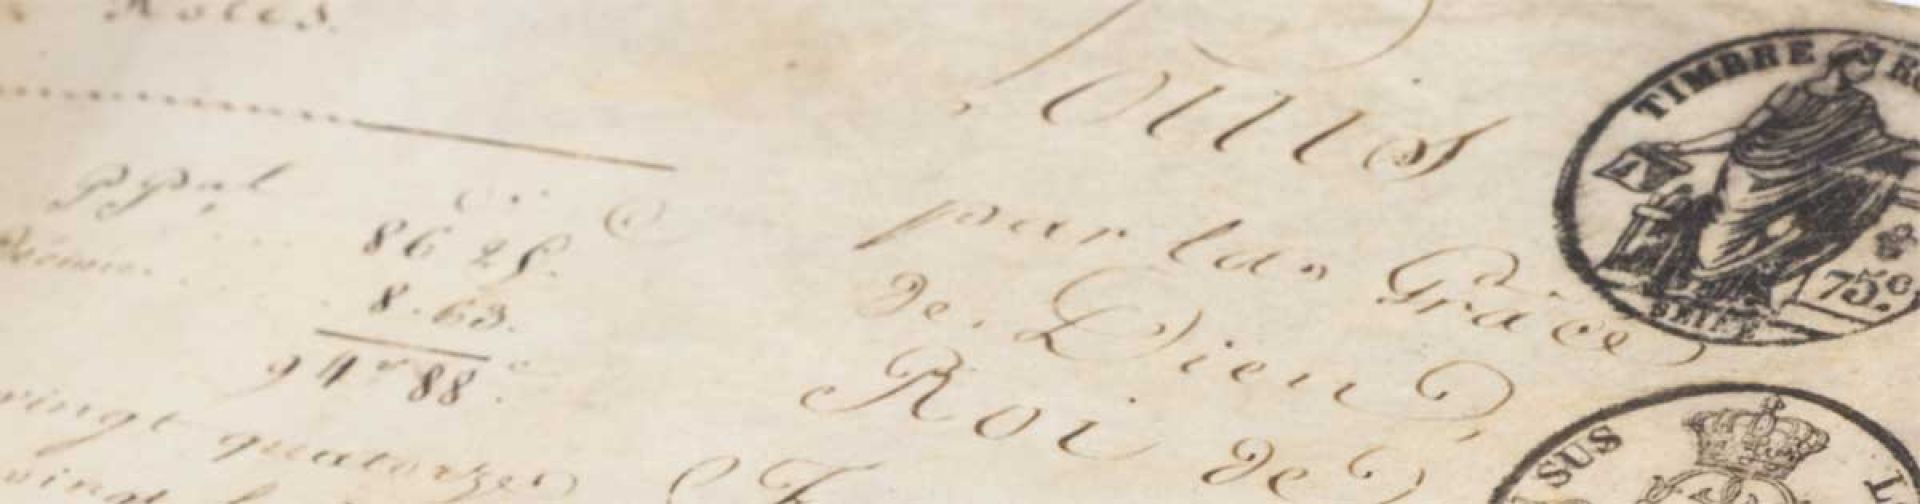 Roles.
PPal
86 25
Décime
8.63.
94 88
vingt quatorze
vingt
Louis
par la Grâce
de Dieu,
Roi de
TIMBRE RO
75 c.
SEINE
SUS